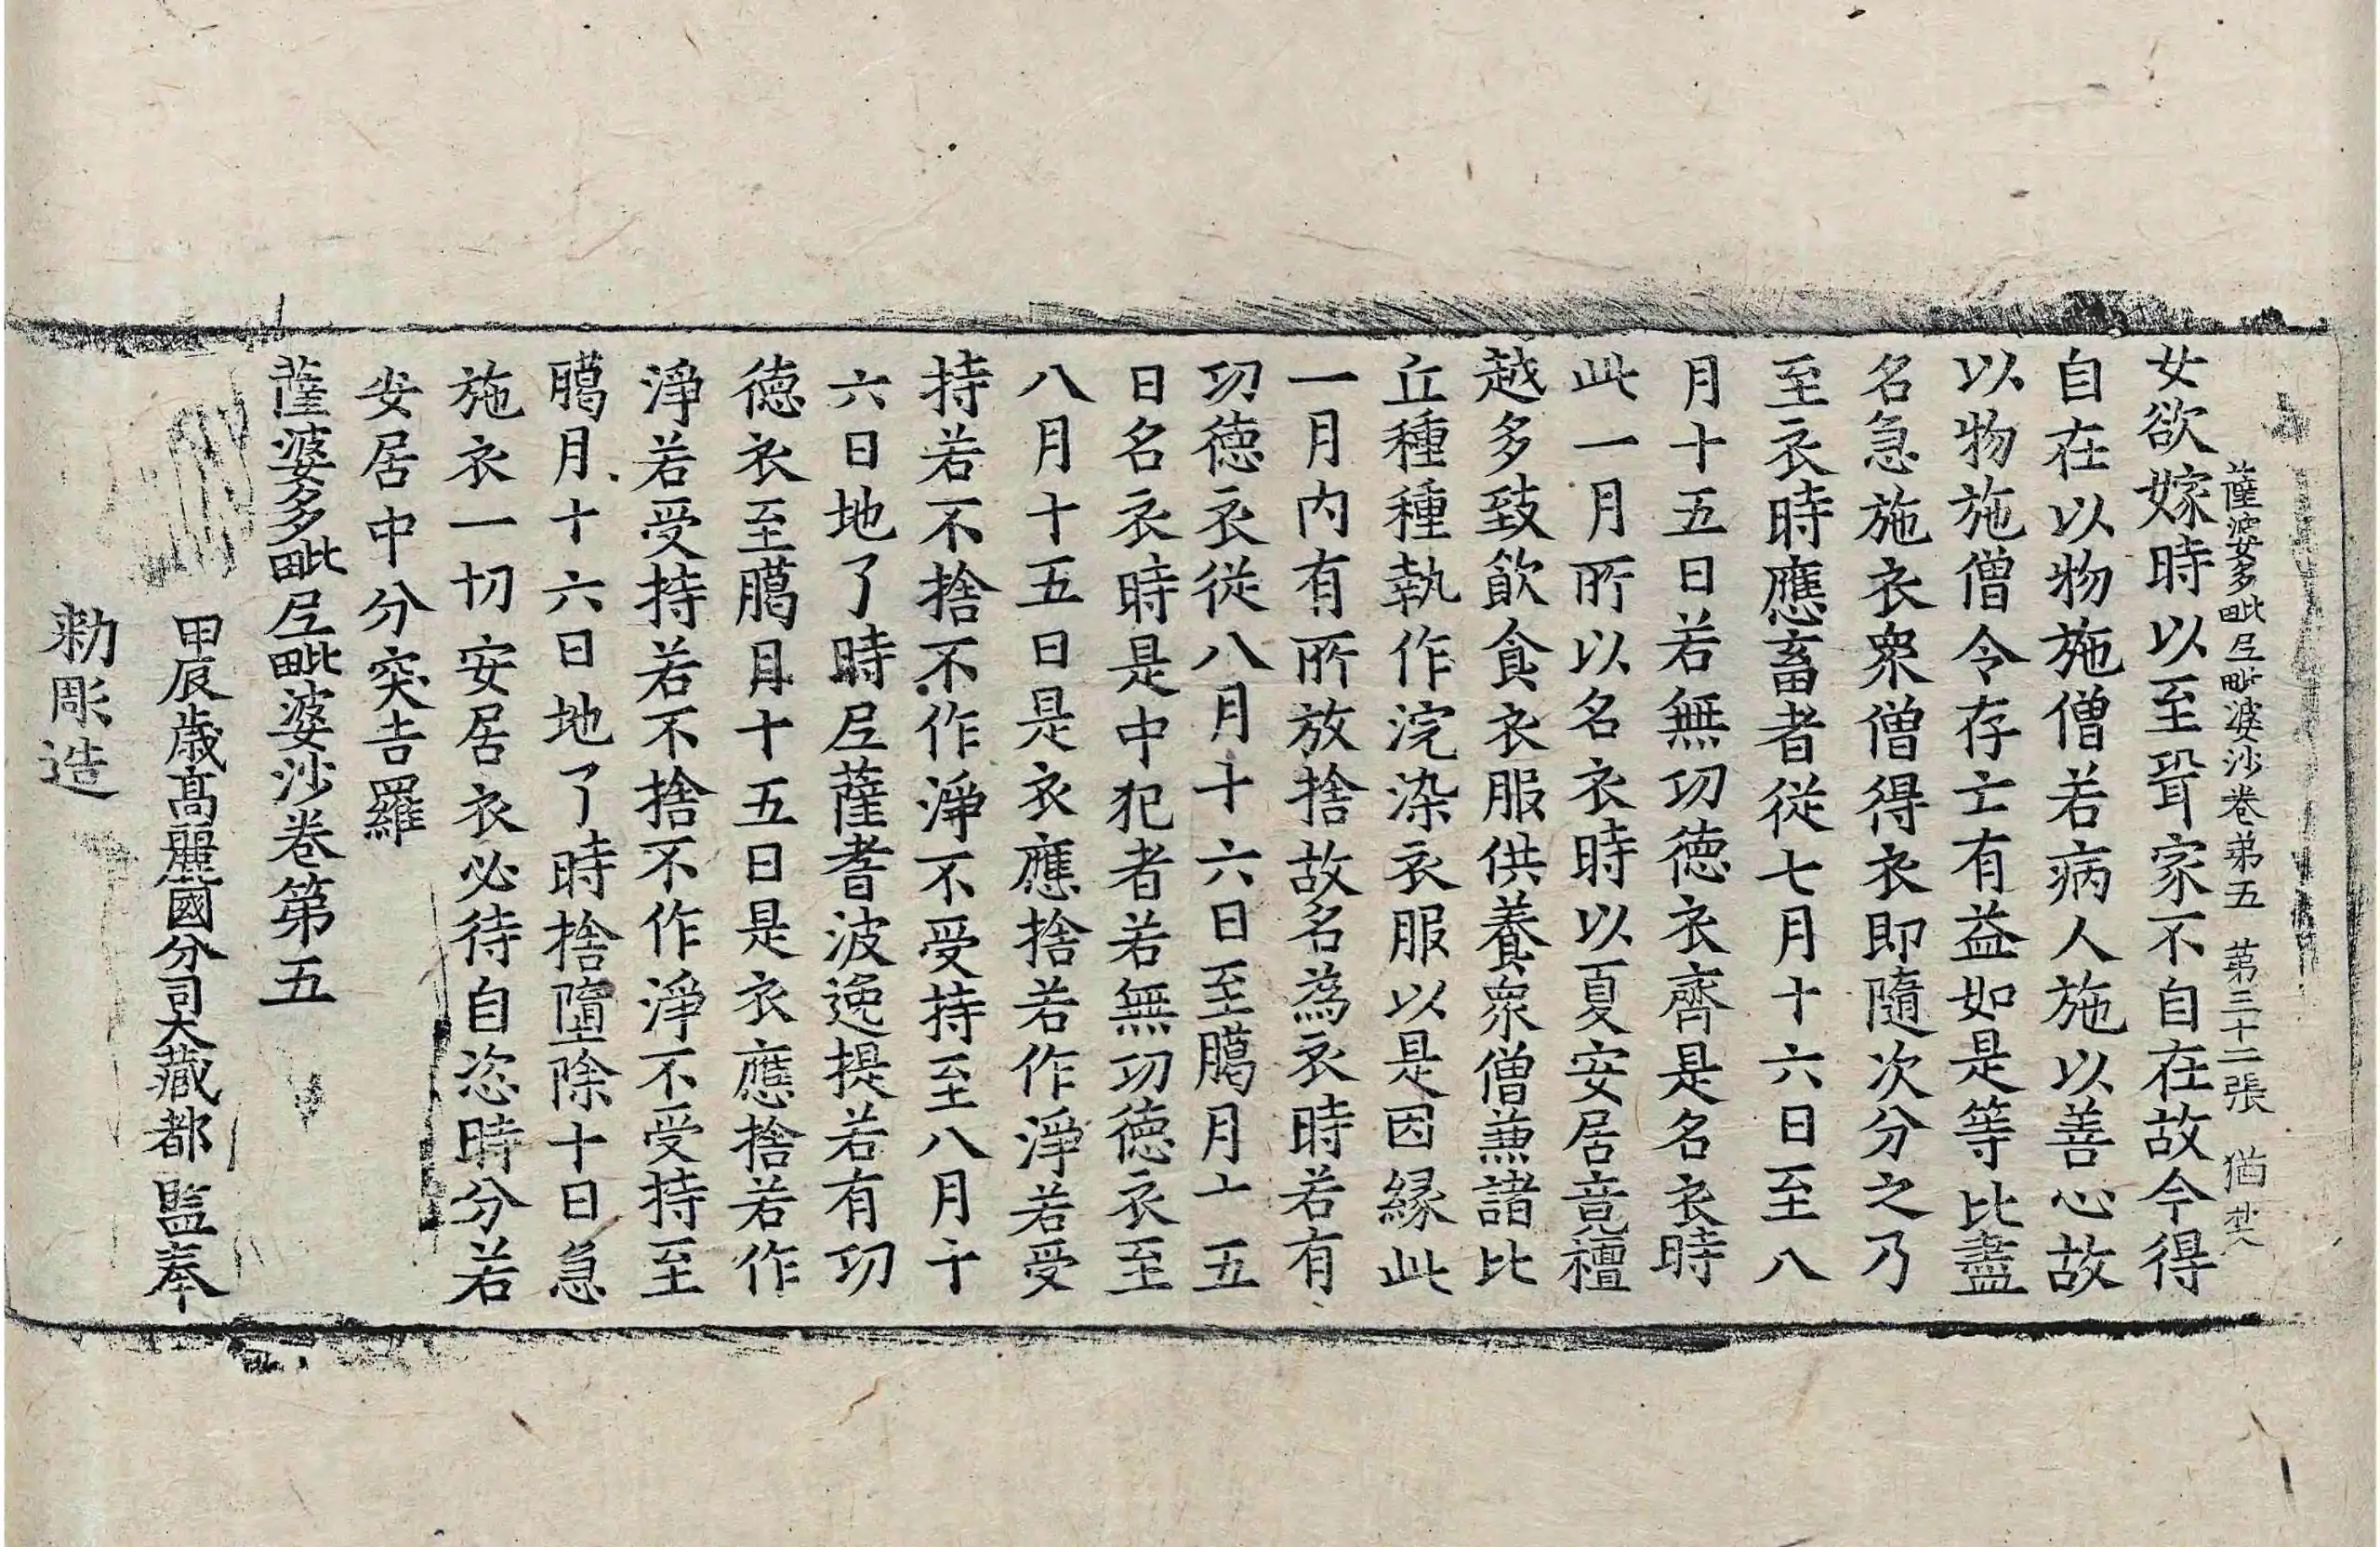 薩婆多毗尼毗婆沙卷第五　第三十二張　猶
女欲嫁時以至聟家不自在故今得
自在以物施僧若病人施以善心故
以物施僧令存亡有益如是等比盡
名急施衣衆僧得衣即隨次分之乃
至衣時應畜者從七月十六日至八
月十五日若無功德衣齊是名衣時
此一月所以名衣時以夏安居竟檀
越多致飮食衣服供養衆僧兼諸比
丘種種執作浣染衣服以是因縁此
一月内有所放捨故名爲衣時若有
功德衣從八月十六日至臈月十五
日名衣時是中犯者若無功德衣至
八月十五日是衣應捨若作淨若受
持若不捨不作淨不受持至八月十
六日地了時尼薩耆波逸提若有功
德衣至臈月十五日是衣應捨若作
淨若受持若不捨不作淨不受持至
臈月十六日地了時捨墮除十日急
施衣一切安居衣必待自恣時分若
安居中分突吉羅
薩婆多毗尼毗婆沙卷第五
甲辰歳高麗國分司大藏都監奉
勅彫造